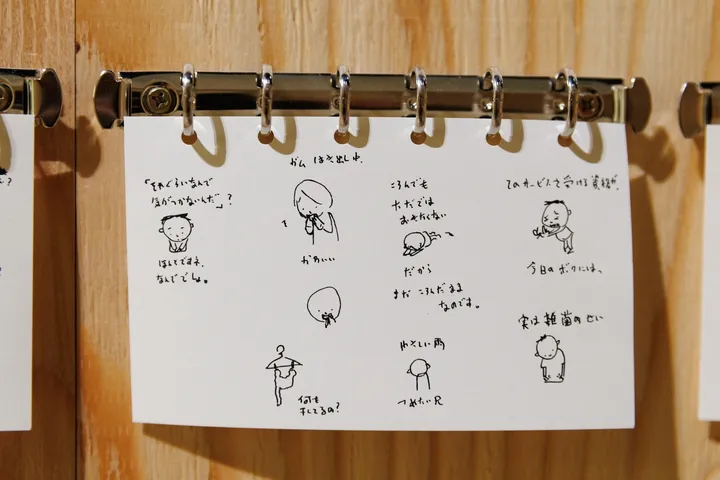 「それぐらいなんで
気がつかないんだ」?
ほんとですネ、
なんででしょ。
ガム はき出し中、
かわいい
何を
干してるの?
ころんでも
ただでは
おきたくない
だから
まだ ころんだまま
なのです。
やさしい雨
つめたい尺
このサービスを受ける資格が、
今日のボクには、
実は雑菌のせい